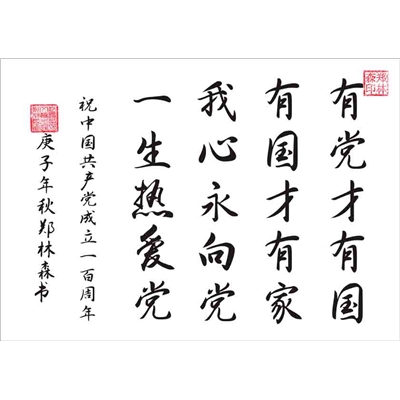 有党才有国
有国才有家
我心永向党
一生热爱党
祝中国共产党成立一百周年
庚子年秋郑林森书
郑林森印